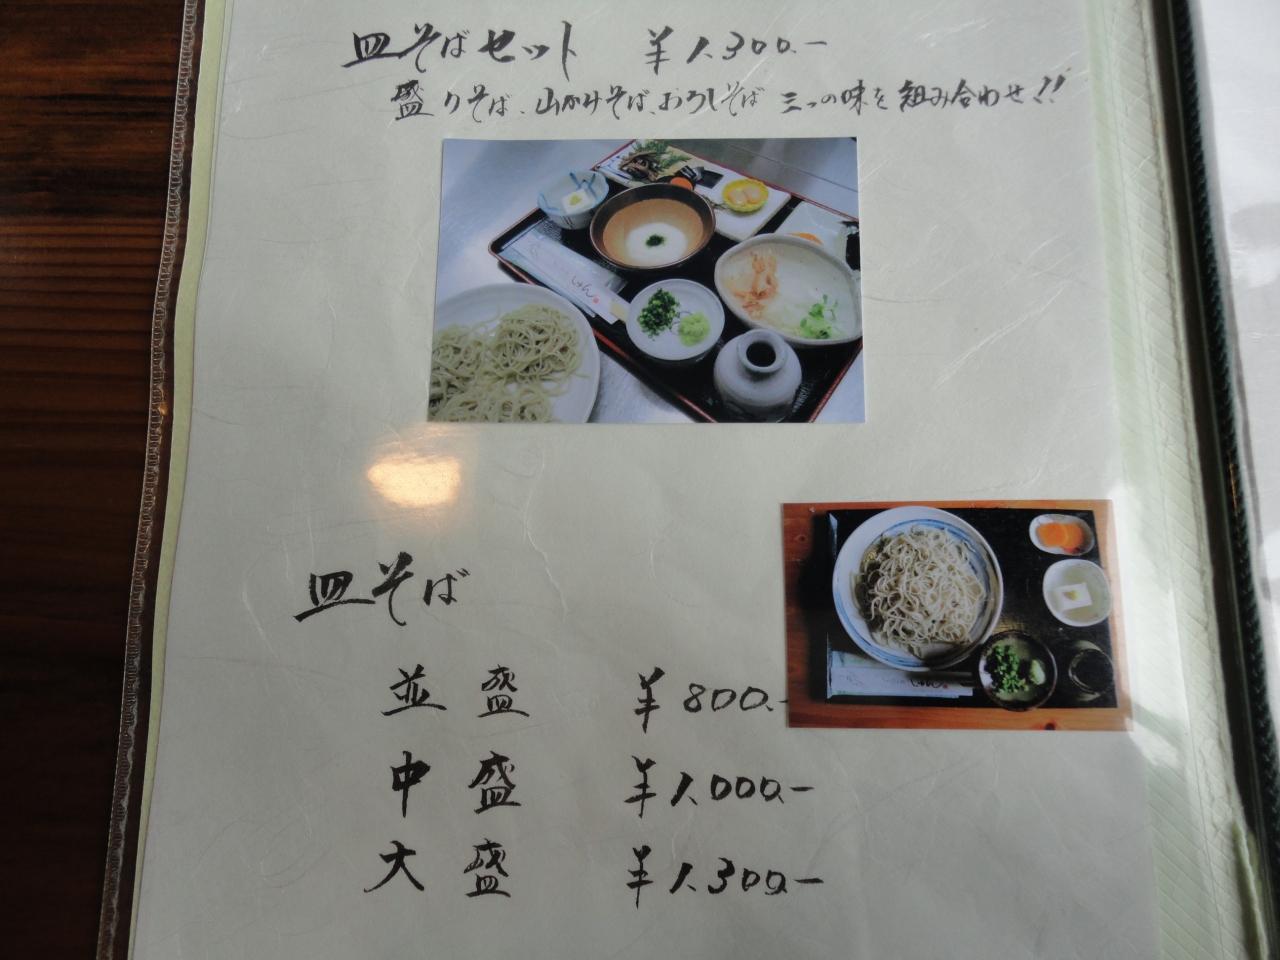 皿そばセット ¥1,300.-
盛りそば、山かけそば、おろしそば 三つの味を組み合わせ!!
じゅん
皿そば
並盛 ¥800.-
中盛 ¥1,000.-
大盛 ¥1,300.-